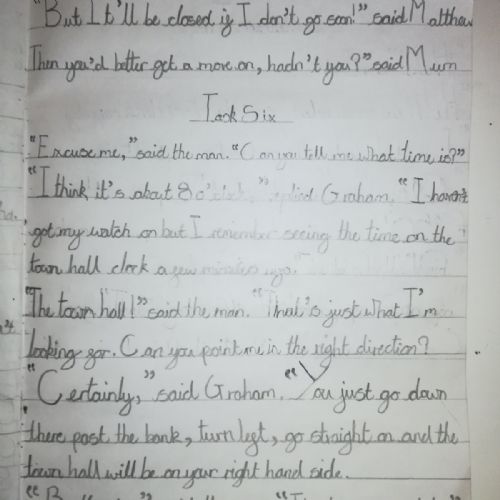 "But It'll be closed if I don't go soon!" said Matthew
Then you'd better get a move on, hadn't you?" said Mum
Task Six
"Excuse me," said the man. "Can you tell me what time is?"
"I think it's about 8 o'clock," replied Graham. "I haven't
got my watch on but I remember seeing the time on the
town hall clock a few minutes ago.
"The town hall!" said the man. "That's just what I'm
looking for. Can you point me in the right direction?
"Certainly," said Graham. "You just go down
there past the bank, turn left, go straight on and the
town hall will be on your right hand side.